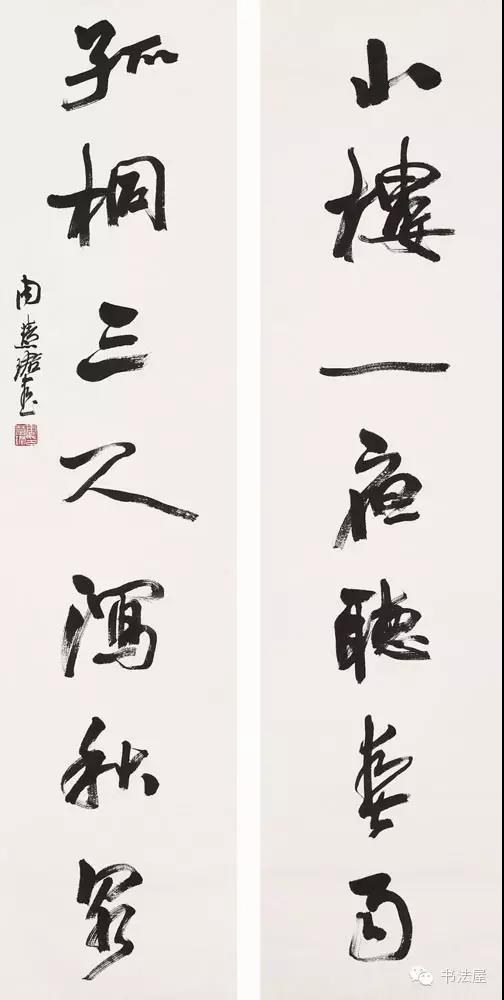 小樓一夜聽春雨
孤桐三尺瀉秋泉
周慧珺書
书法屋